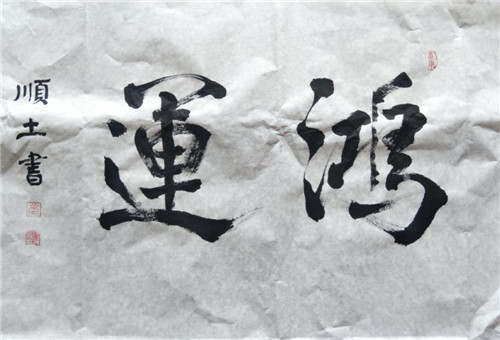 鴻運
順土書